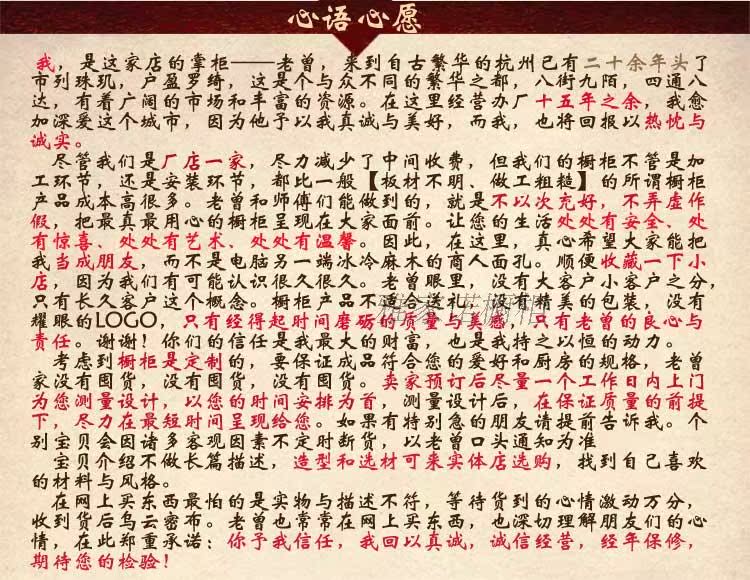 心语心愿
我，是这家店的掌柜——老曾，来到自古繁华的杭州已有二十余年头了
市列珠玑，户盈罗绮，这是个与众不同的繁华之都，八街九陌，四通八
达，有着广阔的市场和丰富的资源。在这里经营办厂十五年之余，我愈
加深爱这个城市，因为他予以我真诚与美好，而我，也将回报以热忱与
诚实。
尽管我们是厂店一家，尽力减少了中间收费，但我们的橱柜不管是加
工环节，还是安装环节，都比一般【板材不明、做工粗糙】的所谓橱柜
产品成本高很多。老曾和师傅们能做到的，就是不以次充好，不弄虚作
假，把最真最用心的橱柜呈现在大家面前。让您的生活处处有安全、处
有惊喜、处处有艺术、处处有温馨。因此，在这里，真心希望大家能把
我当成朋友，而不是电脑另一端冰冷麻木的商人面孔。顺便收藏一下小
店，因为我们有可能认识很久很久。老曾眼里，没有大客户小客户之分，
只有长久客户这个概念。橱柜产品不适合送礼，没有精美的包装，没有
耀眼的LOGO，只有经得起时间磨砺的质量与美感，只有老曾的良心与
责任。谢谢！你们的信任是我最大的财富，也是我持之以恒的动力。
考虑到橱柜是定制的，要保证成品符合您的爱好和厨房的规格，老曾
家没有囤货，没有囤货，没有囤货。卖家预订后尽量一个工作日内上门
为您测量设计，以您的时间安排为首，测量设计后，在保证质量的前提
下，尽力在最短时间呈现给您。如果有特别急的朋友请提前告诉我。个
别宝贝会因诸多客观因素不定时断货，以老曾口头通知为准
宝贝介绍不做长篇描述，造型和选材可来实体店选购，找到自己喜欢
的材料与风格。
在网上买东西最怕的是实物与描述不符，等待货到的心情激动万分，
收到货后乌云密布。老曾也常常在网上买东西，也深切理解朋友们的心
情，在此郑重承诺：你予我信任，我回以真诚，诚信经营，经年保修，
期待您的检验！